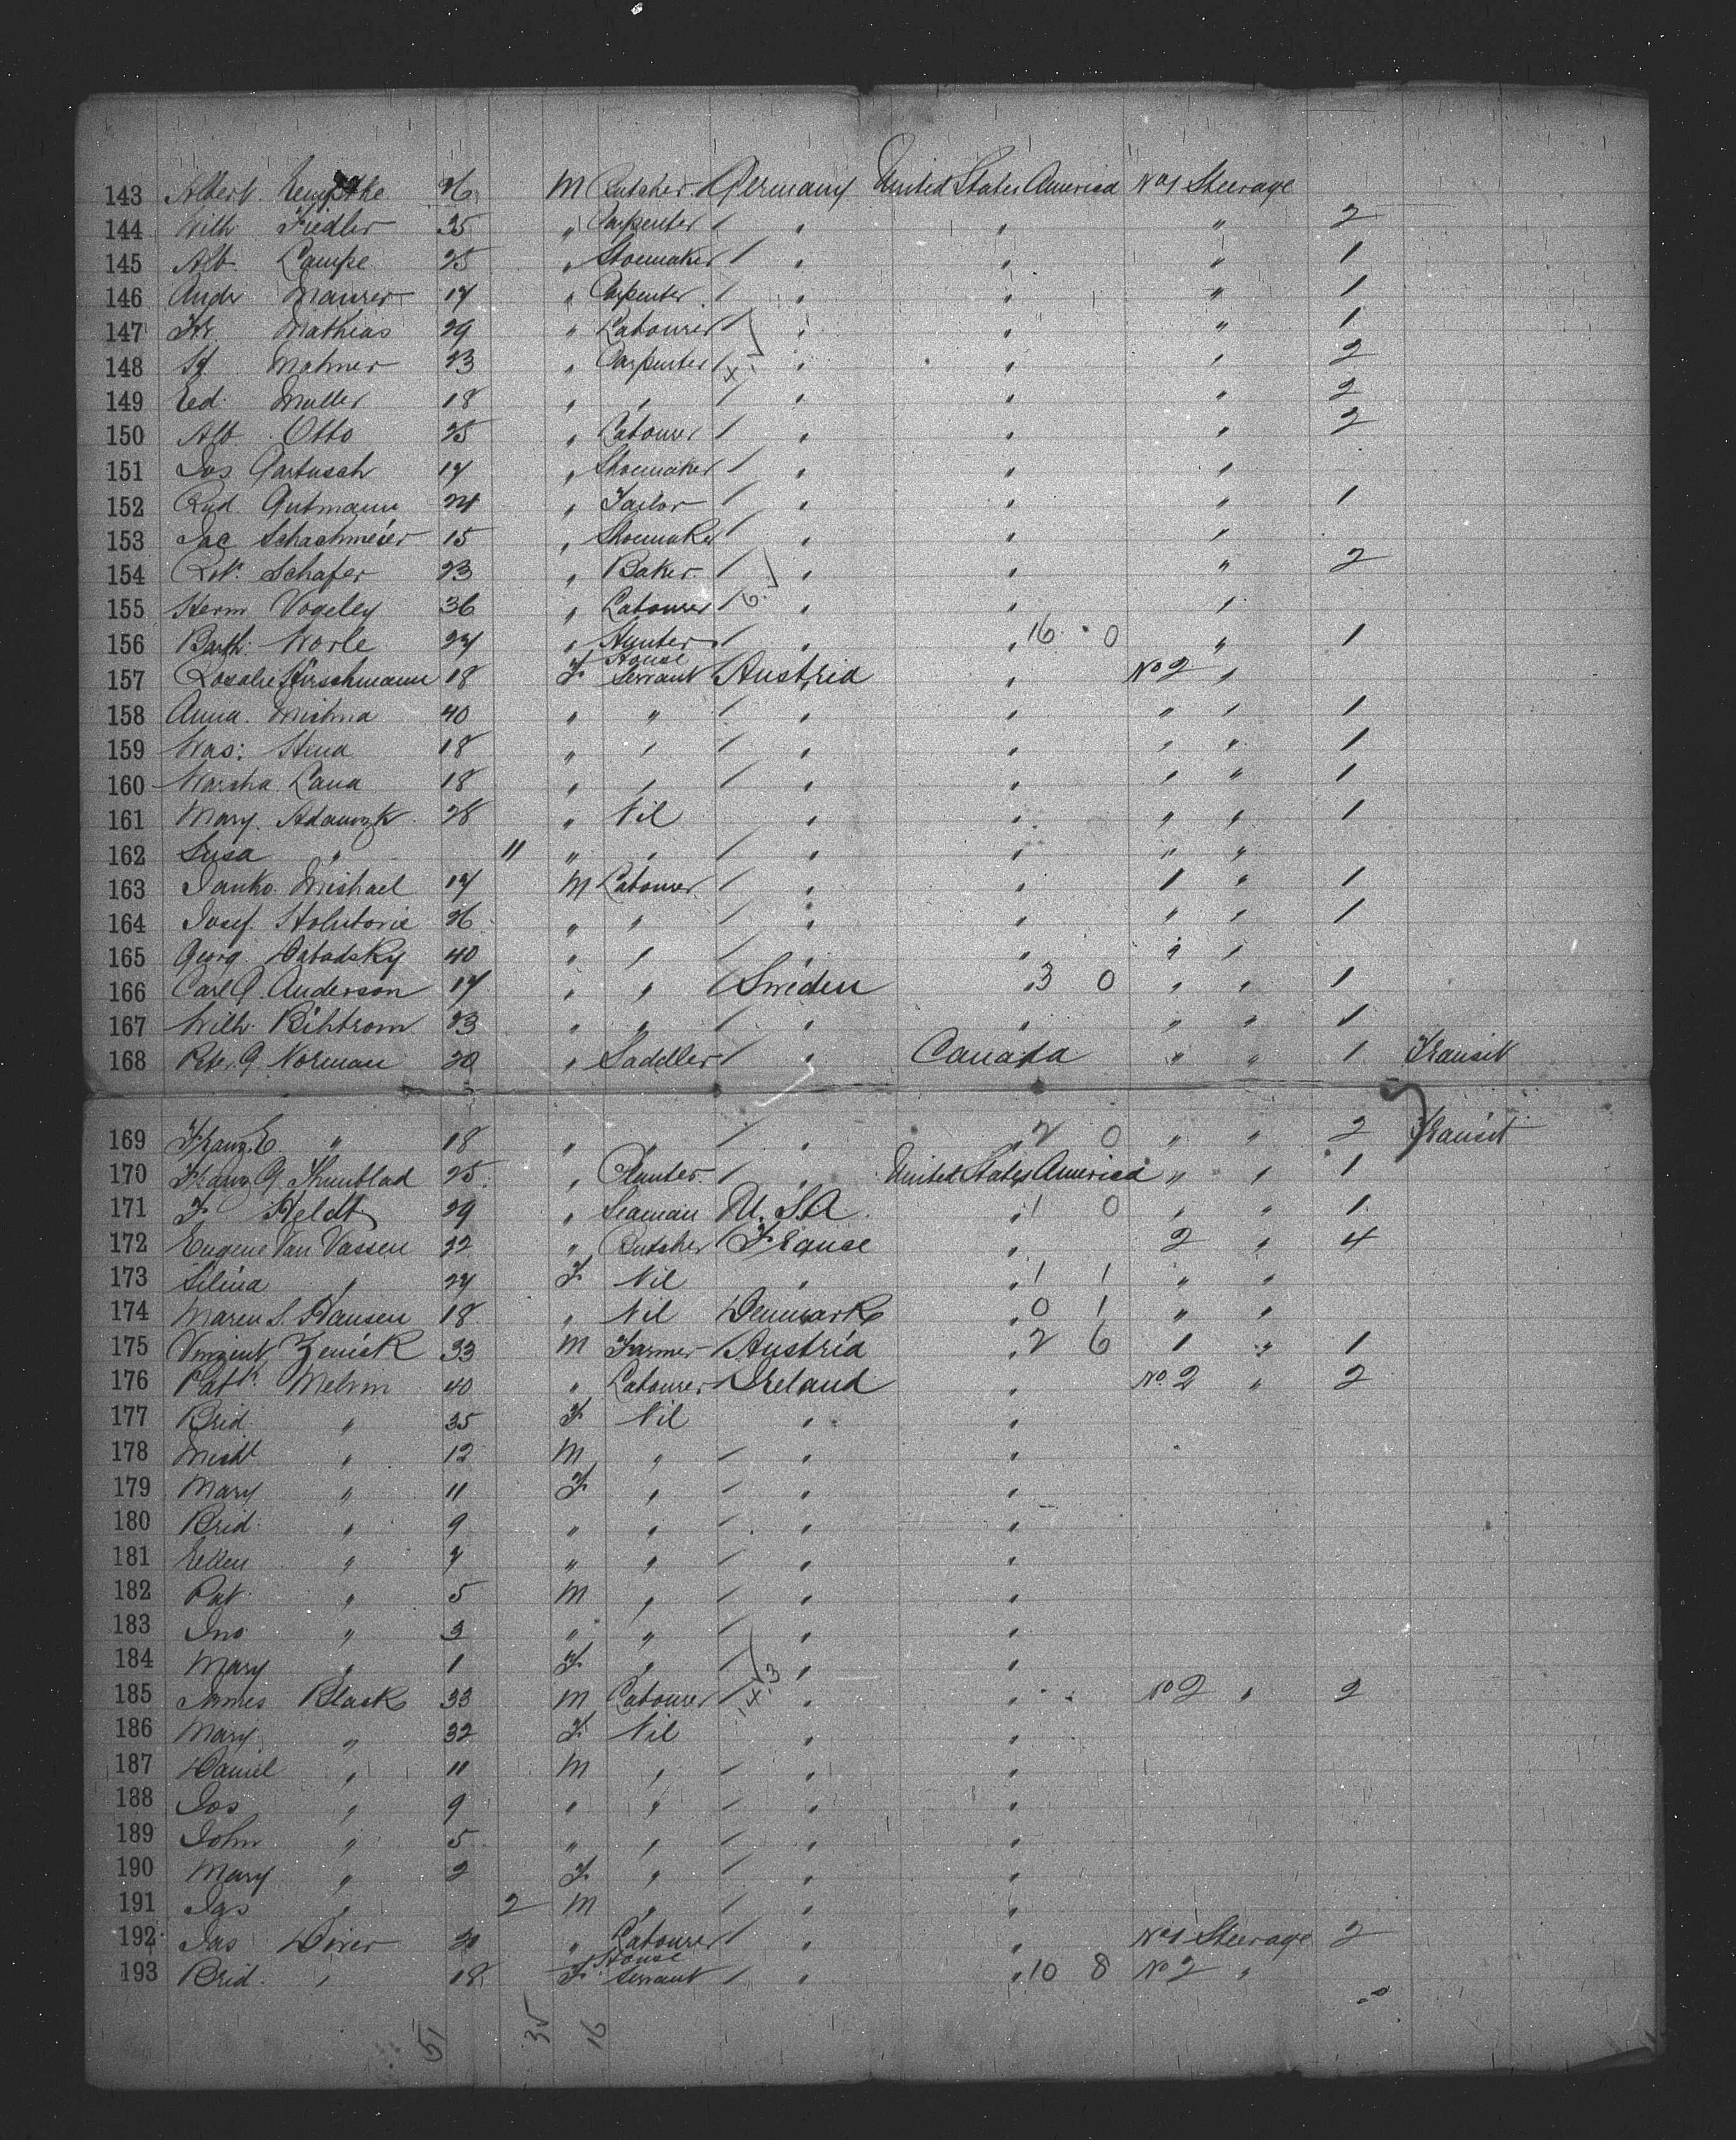 143 Albert 26 M Butcher Germany United States America No 1 Steerage
144 Wilh Fiedler 35 " Carpenter / " " " 2
145 Alb Lampe 25 " Shoemaker / " " " 1
146 Andr Maurer 17 " Carpenter / " " " 1
147 Fr. Mathias 29 " Labourer / " " " 1
148 23 " Carpenter / " " " 2
149 Ed. Muller 18 " " / " " " 2
150 Alb. Otto 25 " Labourer / " " " 2
151 Jos Gartusch 17 " Shoemaker / " " "
152 Rud. Gutmann 24 " Tailor / " " " 1
153 Jac Schachmeier 15 " Shoemaker / " " "
154 Rob. Schafer 23 " Baker / " " " 2
155 Herm Vogeley 36 " Labourer / " " "
156 Barth. Worle 27 " Hunter / " " 16 0 " 1
157 Rosalie Hirschmann 18 F House Servant Austria " No 2 "
158 Anna. Mishna 40 " " / " " " " 1
159 Was: Hena 18 " " / " " " " 1
160 Warsha Lana 18 " " / " " " " 1
161 Mary. Adamzk 28 " Nil " " " " 1
162 Susa " 11 " " / " " " "
163 Janko Mishael 17 M Labourer / " " 1 " 1
164 Josef. 26 " " / " " " " 1
165 Georg. 40 " " / " " " "
166 Carl G. Anderson 17 " " / Sweden " 3 0 " " 1
167 Wilh. 23 " " / " " " " 1
168 G. Norman 20 " Saddler / " Canada " " 1 Transit
169 Franz. E " 18 " " / " " 2 0 " " 2 Transit
170 Franz G. 25 " / " United States America " " 1
171 F Heldt 29 " Seaman U.S.A. " 1 0 " " 1
172 Eugene Van Vassen 32 " Butcher France " 2 " 4
173 Silina " 27 F Nil " " 1 1 " "
174 Maren S. Hansen 18 " Nil Denmark " 0 1 " "
175 Vinzent Zenisk 33 M Farmer Austria " 2 6 1 " 1
176 Patk. Melvin 40 " Labourer Ireland " No. 2 " 2
177 Brid. " 35 F Nil " "
178 Michl " 12 M " / " "
179 Mary " 11 F " / " "
180 Brid. " 9 " " / " "
181 Ellen " 7 " " / " "
182 Pat. " 5 M " / " "
183 Jno " 3 " " / " "
184 Mary " 1 F " / " "
185 James Black 33 M Labourer / " " No 2 " 2
186 Mary " 32 F Nil " "
187 Daniel " 11 M " / " "
188 Jos " 9 " " / " "
189 John " 5 " " / " "
190 Mary " 2 F " / " "
191 Jas " 2 M " / " "
192 Jas Diver 20 " Labourer / " " No 1 Steerage 2
193 Brid. " 18 F House Servant / " " 10 8 No 2 "
51 35 16